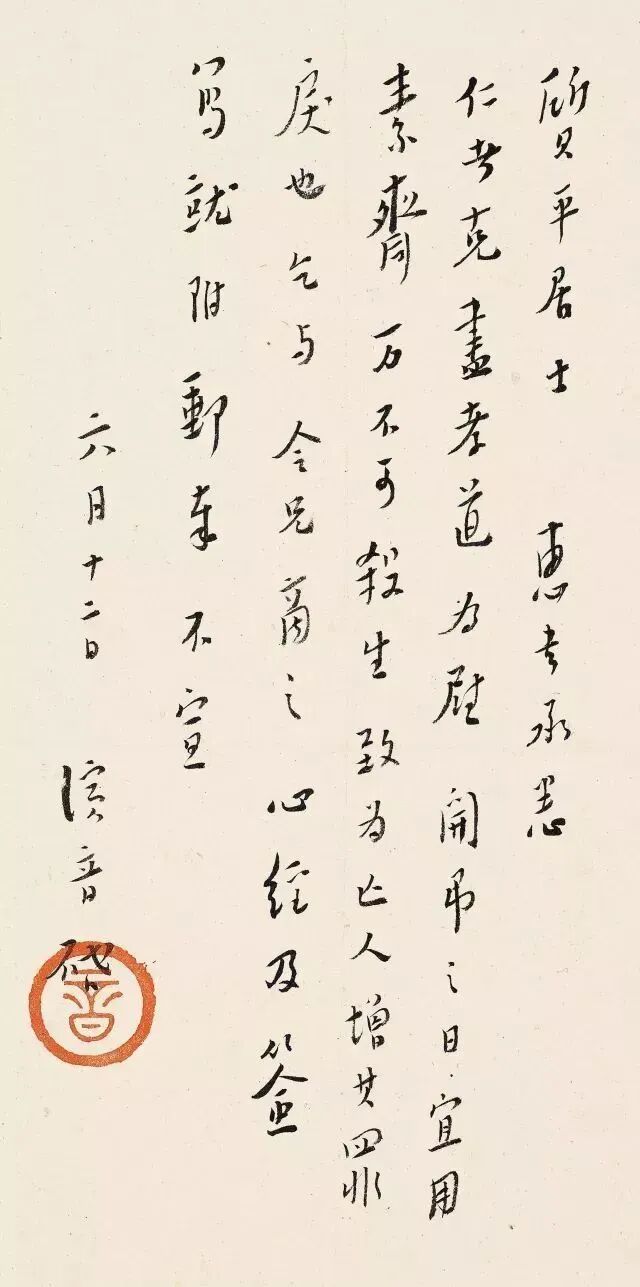 質平居士 惠書承悉
仁者克盡孝道為慰 開弔之日宜用
素齋万不可殺生致為亡人增其罪
戾也乞与 令兄商之 心經及簽
寫就附郵奉 不宣
六月十二日 演音啓
音